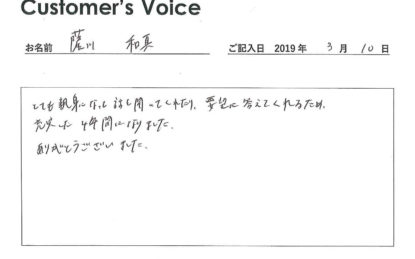 Customer's Voice
お名前 薩川 和真 ご記入日 2019年 3月 10日
とても親身になって話を聞いてくれたり、要望に答えてくれるため、
充実した4年間になりました。
ありがとうございました。